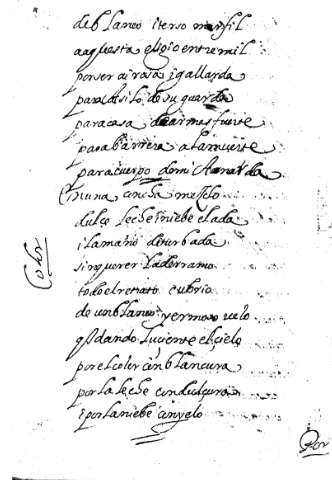 de blanco iterso marfil
a aquesta eligio entre mil
por ser airosa i gallarda
para castillo de su guarda
para casa de armas fuerte
para barrera a la muerte
para cuerpo de mi Amarda
En una ancha mezclo
dulçe leche i niebe elada
i la mano de turbada
sin querer la derramo
todo el retrato cubrio
de un blanco i ermoso velo
quedando luciente el cielo
por el color en blancura
por la leche con dulçura
i por la niebe con yelo
Color
Por